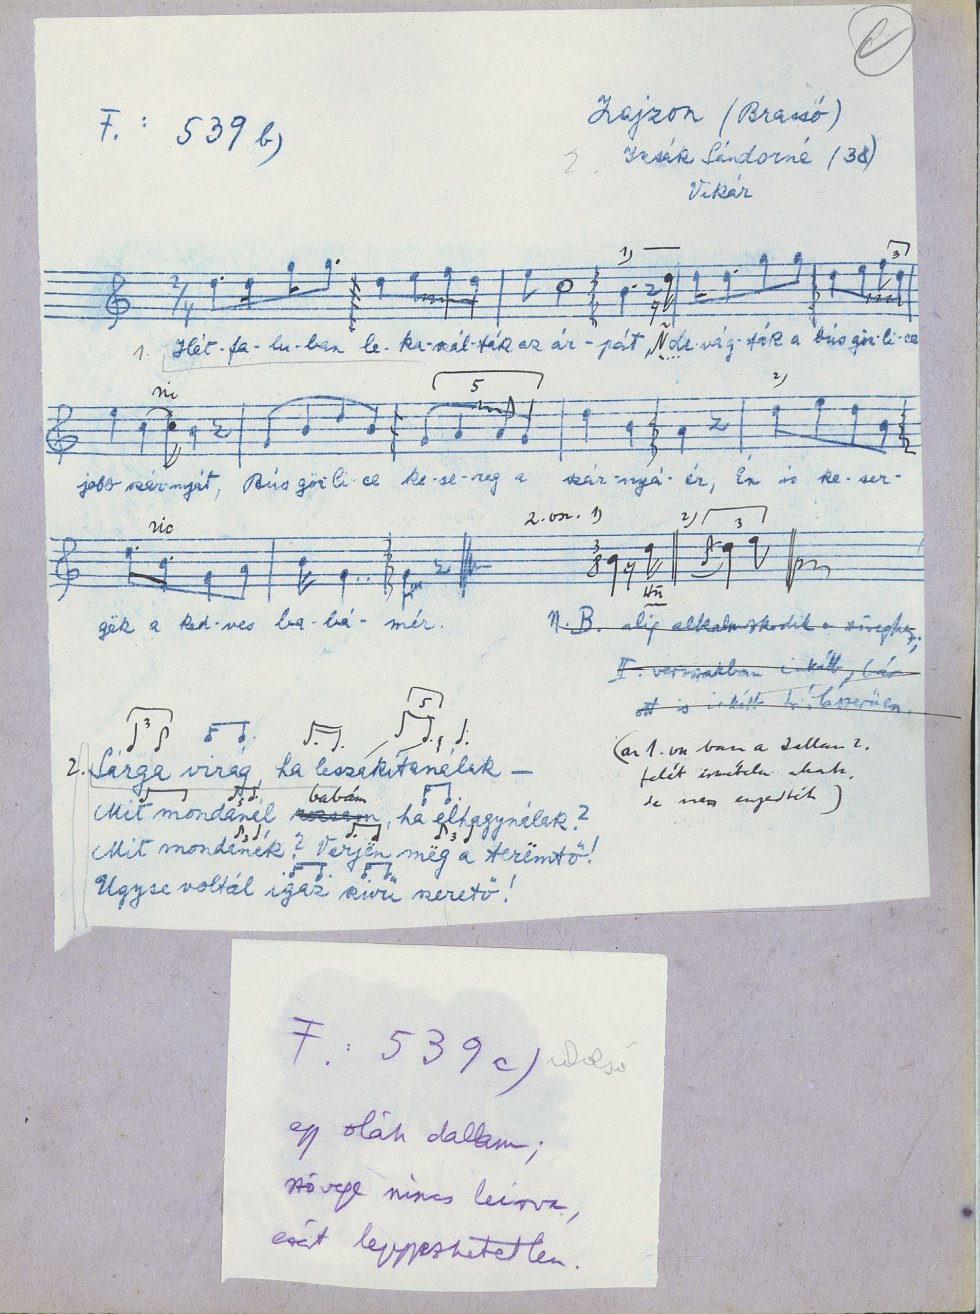 F.: 539 b)
Zajzon (Brassó)
2. Izsák Sándorné (38)
Vikár
1)
3
2/4
1. Hét-fa-lu-ban le-ka-szál-ták az ár-pát, De vág-ták a bús gör-li-ce
5
2)
jobb szár-nyát, Bús gör-li-ce ke-se-reg a szár-nyá-ér, Én is ke-ser-
2. vsz. 1)
2)
3
3/8
gëk a ked-ves ba-bá-mér.
N.B. alig alkalmazkodik a szöveghez;
II. versszakban inkább, bár
ott is inkább
(az 1. vsz ban a dallam 2.
felét ismételni akarta,
de nem engedték)
3
5
2. Sárga virág, ha leszakítanálak –
Mit mondanál rózsám babám, ha elhagynálak?
Mit mondanék? Verjën mëg a terëmtő!
Ugyse voltál igaz szivü szerető!
F.: 539 c) utolsó
egy oláh dallam;
szövege nincs leirva,
ezért lejegyezhetetlen.